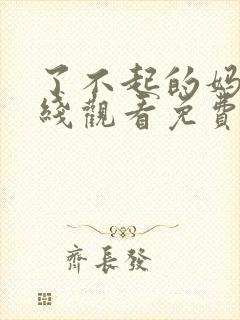 了不起的妈
綫觀看免費
齊長發